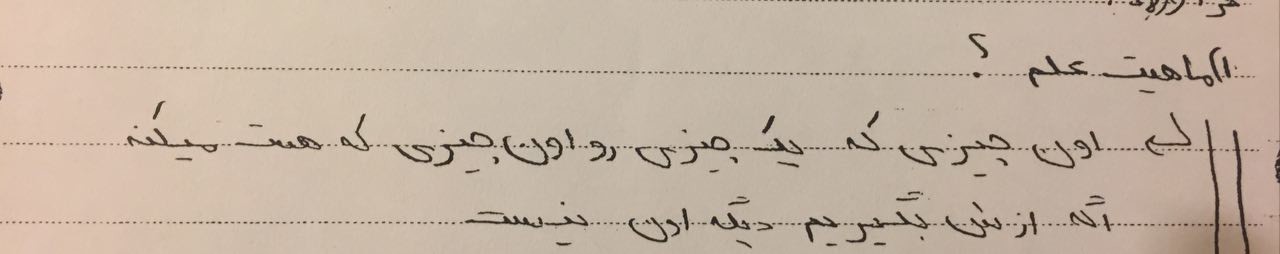 ۱) ماهیت علم ؟
اون چیزی که یک چیزی رو اون چیزی که هست میکنه
اگه ازش بگیریم دیگه اون نیست